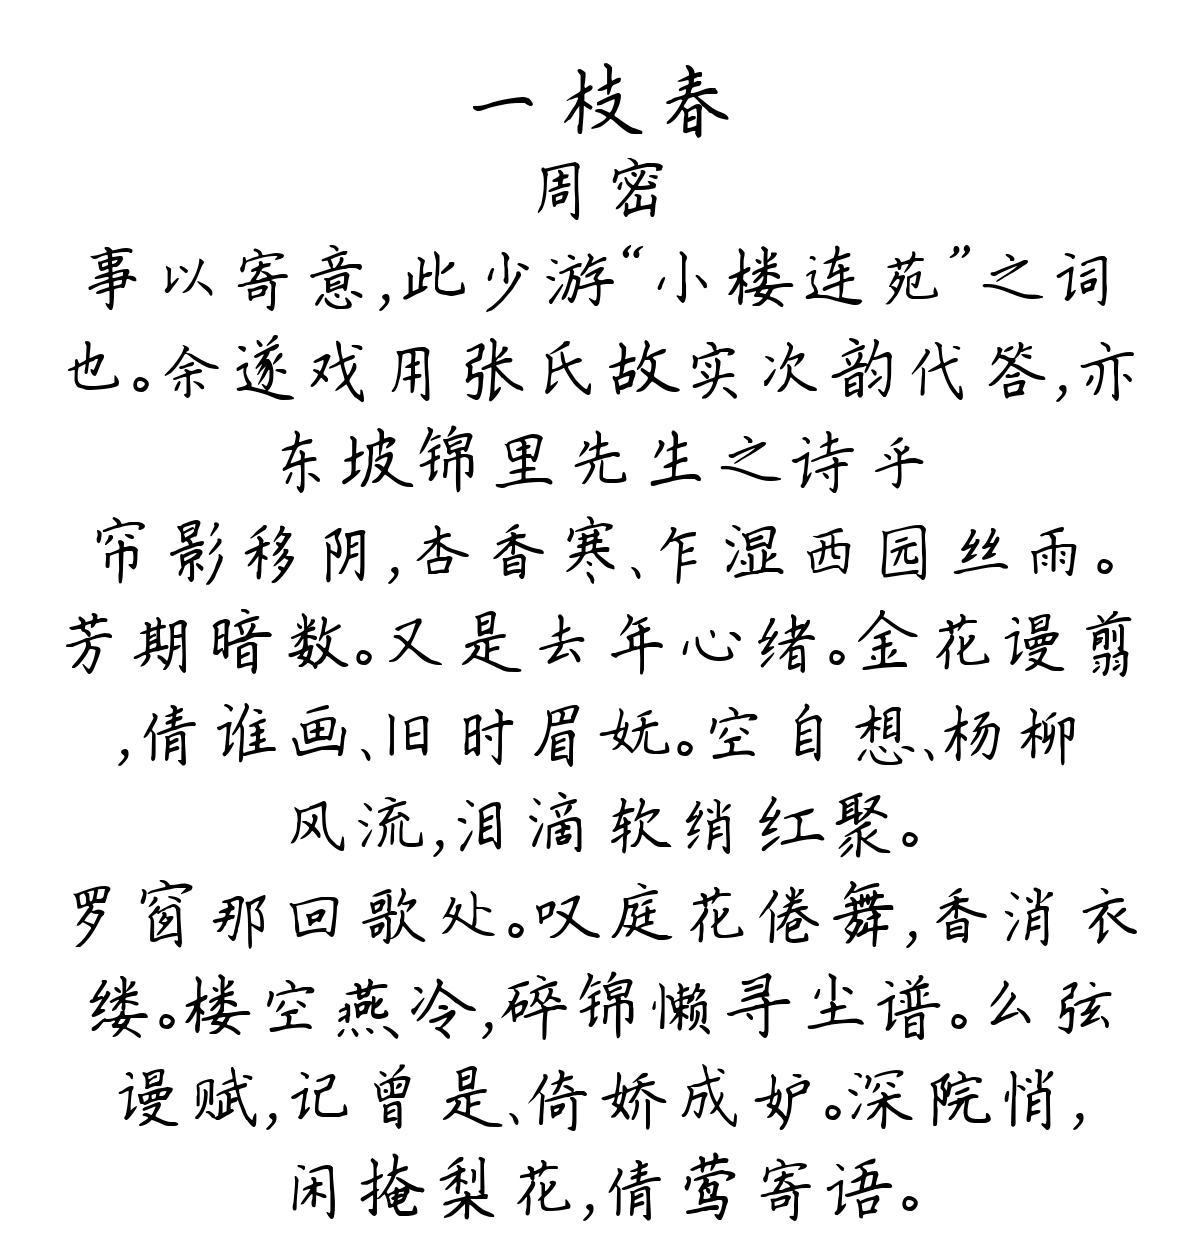 一枝春
周密
事以寄意,此少游“小楼连苑”之词
也。余遂戏用张氏故实次韵代答,亦
东坡锦里先生之诗乎
帘影移阴,杏香寒、乍湿西园丝雨。
芳期暗数。又是去年心绪。金花谩翦
,倩谁画、旧时眉妩。空自想、杨柳
风流,泪滴软绡红聚。
罗窗那回歌处。叹庭花倦舞,香消衣
缕。楼空燕冷,碎锦懒寻尘谱。么弦
谩赋,记曾是、倚娇成妒。深院悄,
闲掩梨花,倩莺寄语。